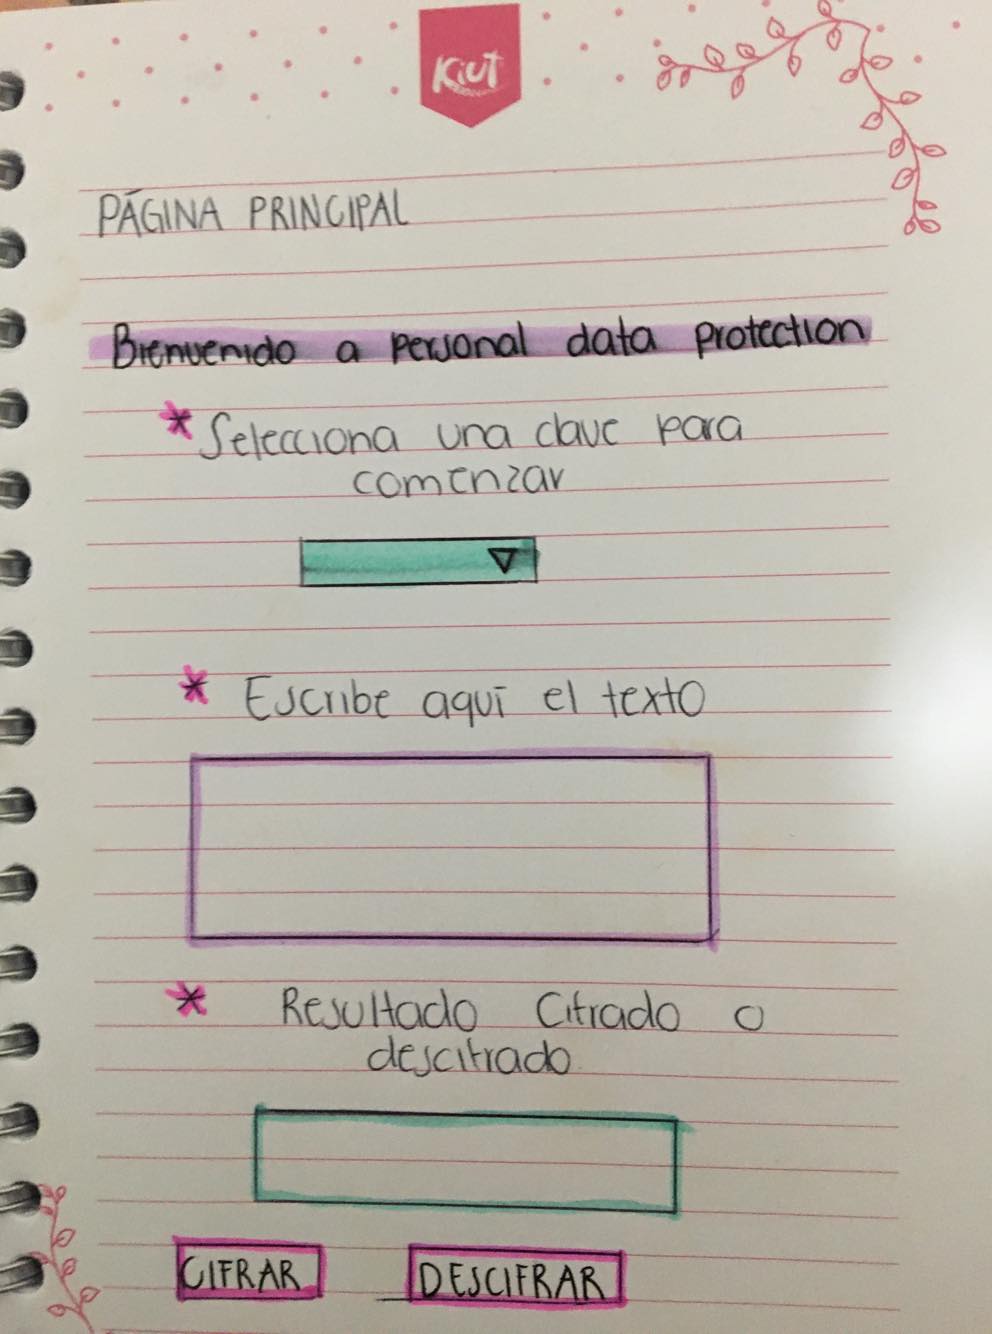 Kiut
PÁGINA PRINCIPAL
Bienvenido a personal data protection
* Selecciona una clave para
comenzar
* Escribe aquí el texto
* Resultado Cifrado o
descifrado
CIFRAR
DESCIFRAR